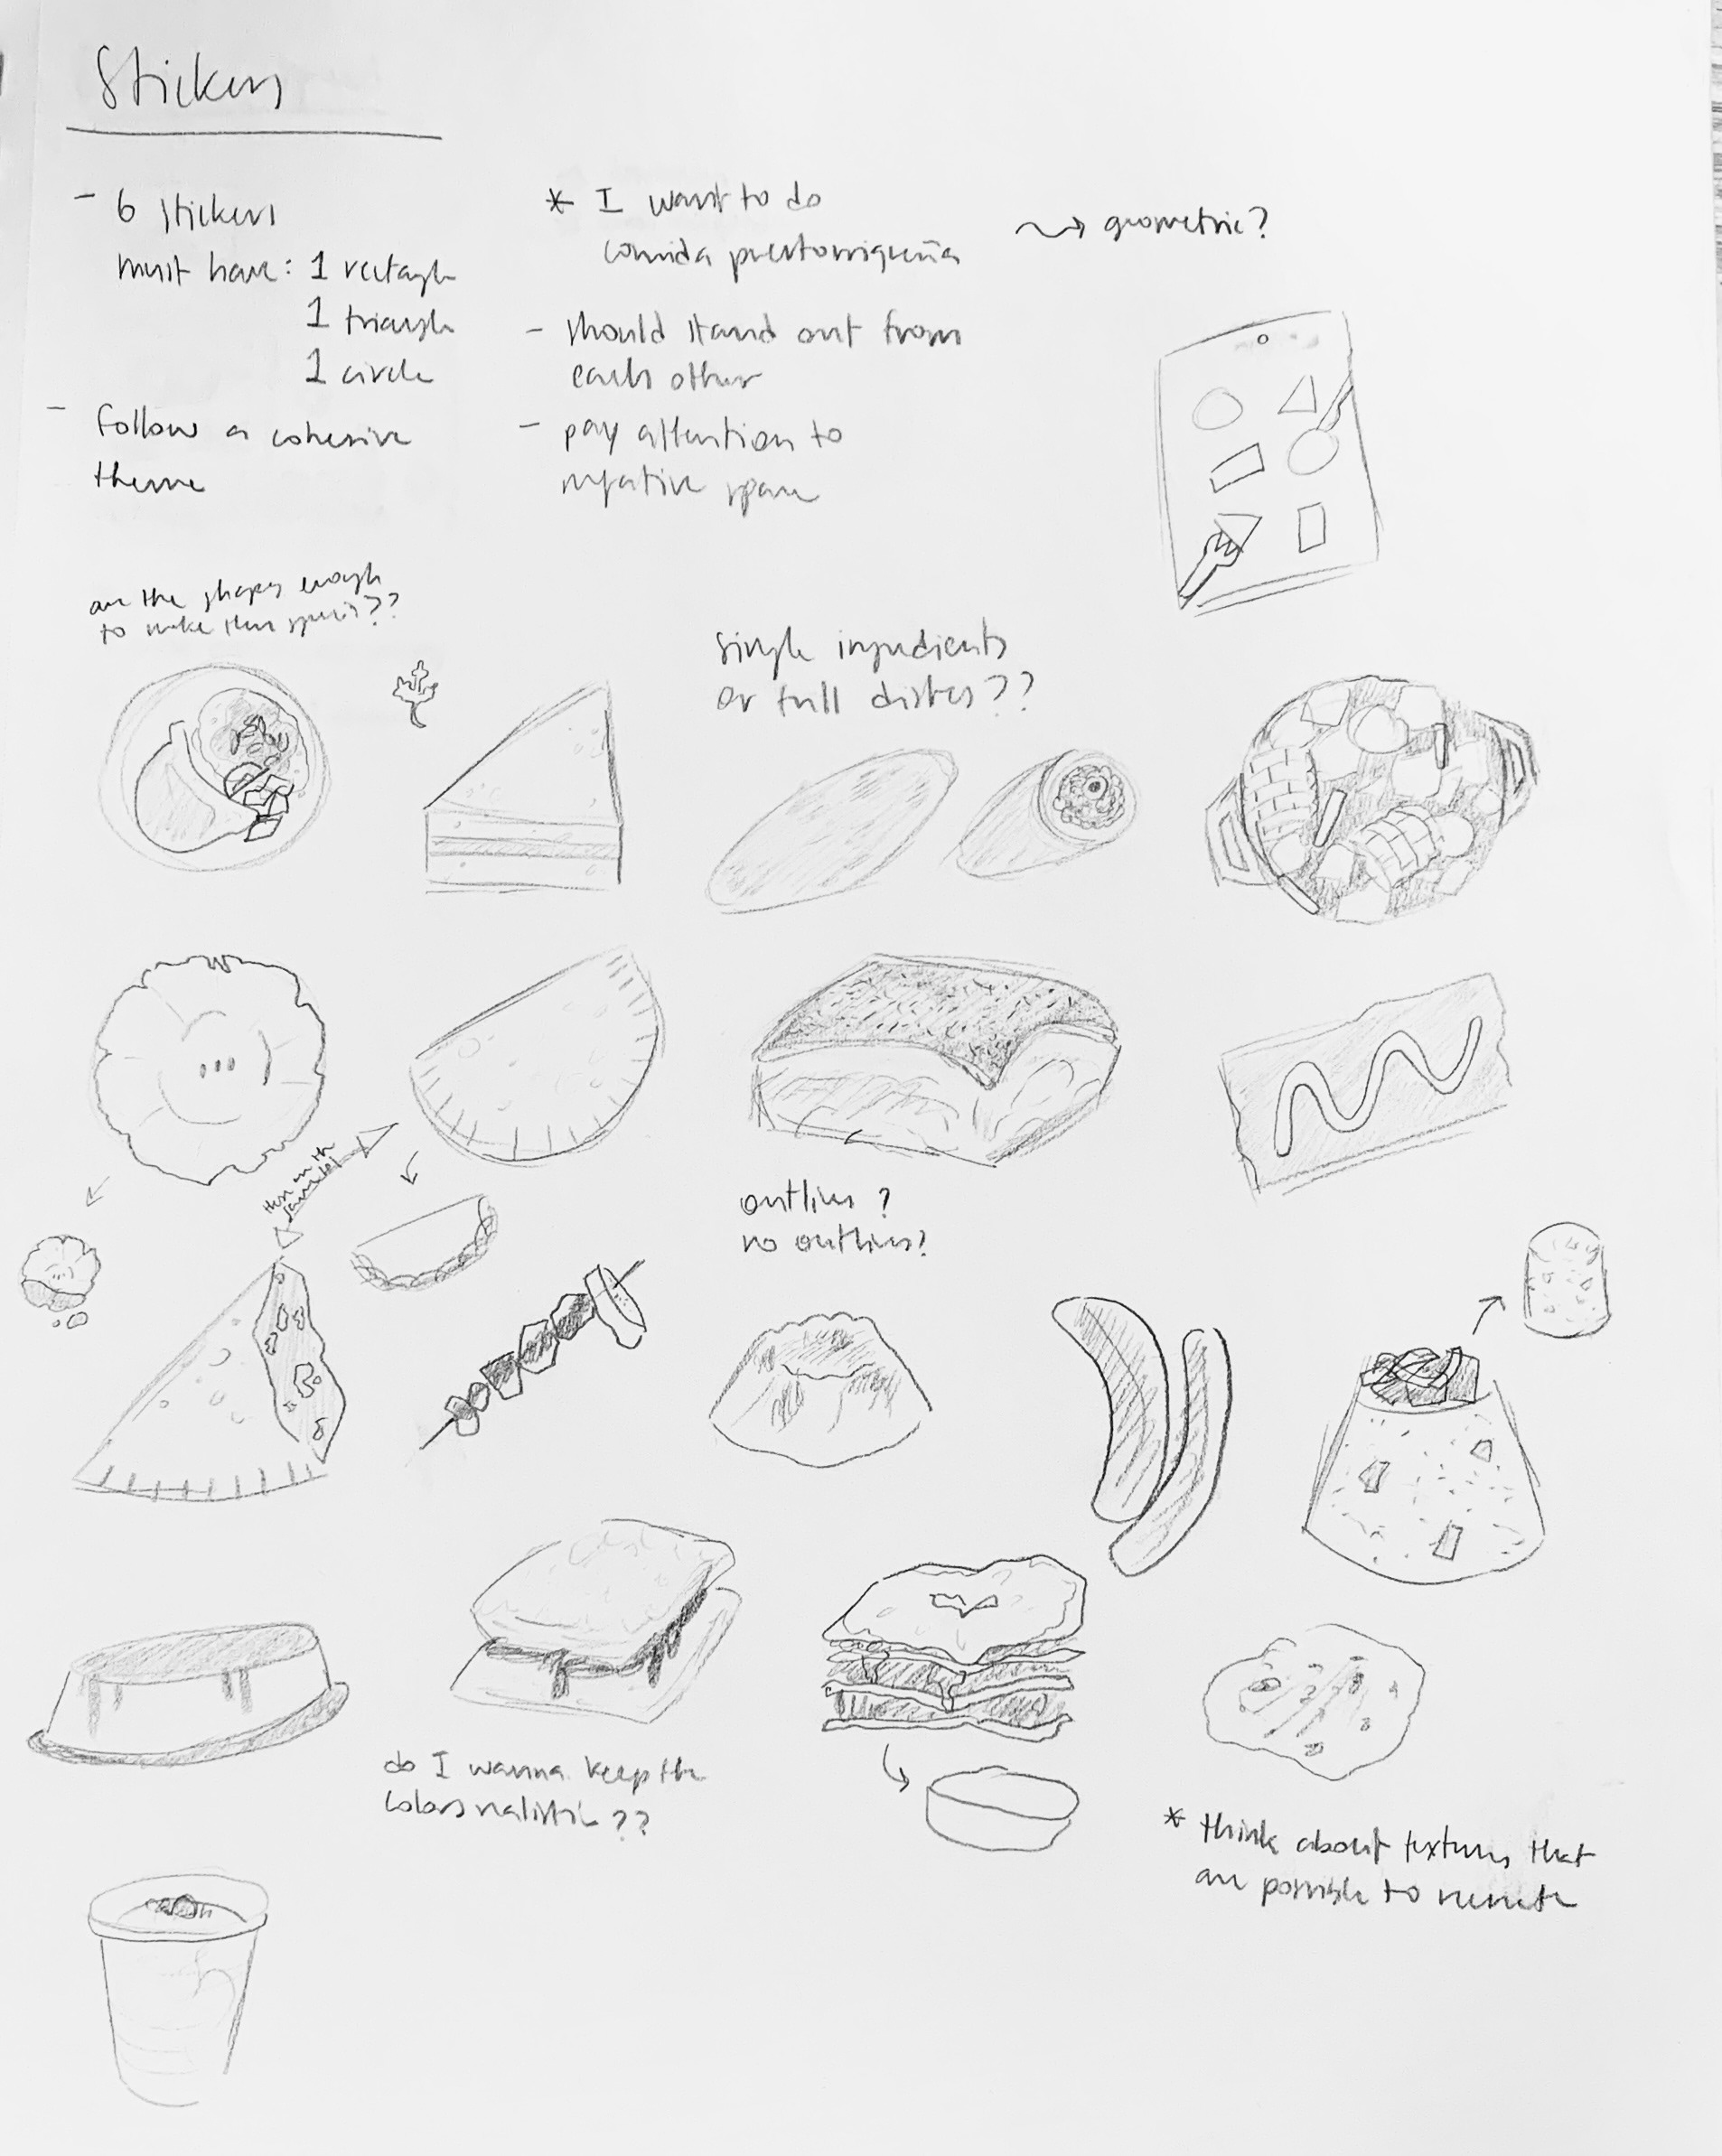 Stickers
- 6 stickers
must have: 1 rectangle
1 triangle
1 circle
- follow a cohesive
theme
* I want to do
comida puertorriqueña
- should stand out from
each other
- pay attention to
negative space
geometric?
are the shapes enough
to make them special??
single ingredients
or full dishes??
these are the
same idea
outlines?
no outlines?
do I wanna keep the
colors realistic??
* think about textures that
are possible to recreate